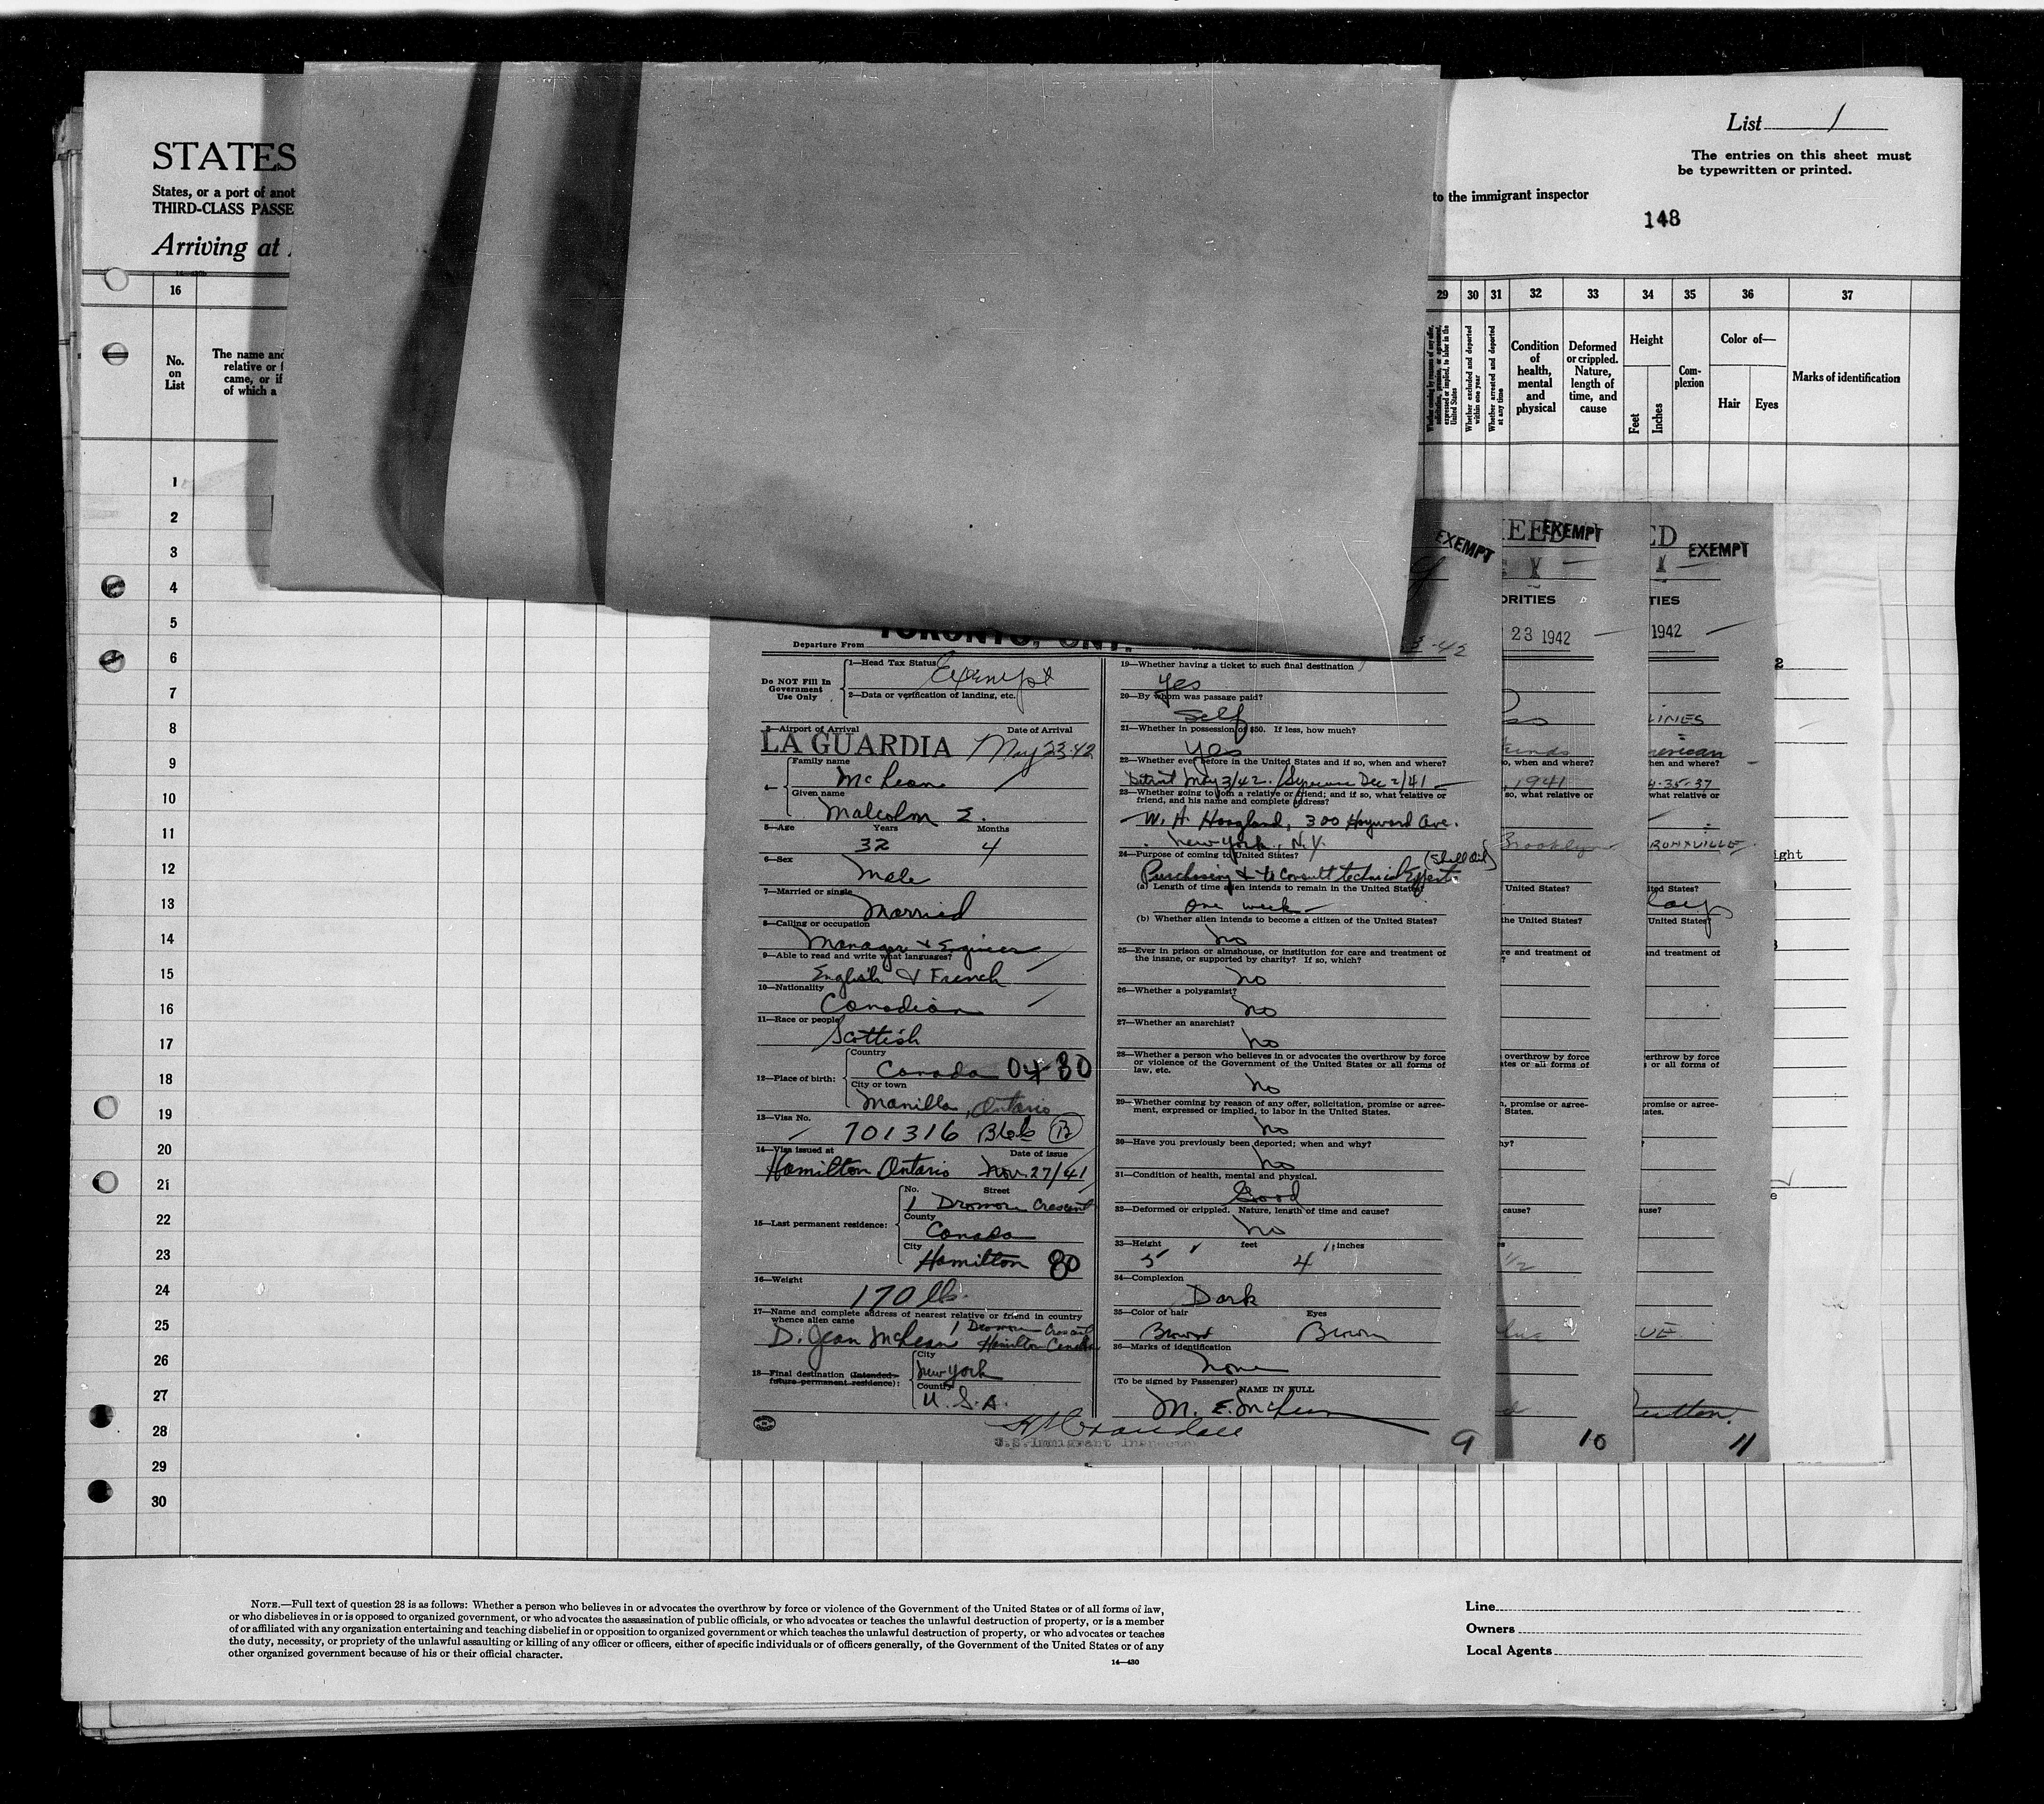 STATES
States, or a port of anot
THIRD-CLASS PASSE
Arriving at
List 1
The entries on this sheet must
be typewritten or printed.
to the immigrant inspector
148
16
No.
on
List
The name and
relative or f
came, or if
of which a
29
30
31
32
33
34
35
36
37
Whether coming by reason of any offer, solicitation, promise, or agreement, expressed or implied, to labor in the United States
Whether excluded and deported within one year
Whether arrested and deported at any time
Condition
of
health,
mental
and
physical
Deformed
or crippled.
Nature,
length of
time, and
cause
Height
Feet
Inches
Com-
plexion
Color of—
Hair
Eyes
Marks of identification
1
2
3
4
5
6
7
8
9
10
11
12
13
14
15
16
17
18
19
20
21
22
23
24
25
26
27
28
29
30
TORONTO, ONT.
Departure From
Do NOT Fill In
Government
Use Only
1—Head Tax Status
Exempt
2—Data or verification of landing, etc.
3—Airport of Arrival Date of Arrival
LA GUARDIA May 23-42
4—
Family name
McLean
Given name
Malcolm E.
5—Age Years Months
32 4
6—Sex
Male
7—Married or single
Married
8—Calling or occupation
Manager & Engineer
9—Able to read and write what languages?
English & French
10—Nationality
Canadian
11—Race or people
Scottish
12—Place of birth:
Country
Canada 04-80
City or town
Manilla, Ontario
13—Visa No.
701316 B
14—Visa issued at Date of issue
Hamilton Ontario Nov. 27/41
15—Last permanent residence:
No. Street
1 Dromore Crescent
County
Canada
City
Hamilton 80
16—Weight
170 lb.
17—Name and complete address of nearest relative or friend in country
whence alien came
D. Jean McLean 1 Dromore Crescent
Hamilton Canada
18—Final destination (Intended
future permanent residence):
City
New York
Country
U.S.A.
19—Whether having a ticket to such final destination
Yes
20—By whom was passage paid?
Self
21—Whether in possession of $50. If less, how much?
Yes
22—Whether ever before in the United States and if so, when and where?
Detroit May 3/42. Syracuse Dec 2/41
23—Whether going to join a relative or friend; and if so, what relative or
friend, and his name and complete address?
W. H. Hoagland, 300 Hayward Ave.
New York, N.Y.
24—Purpose of coming to United States? (Shell Oil)
Purchasing & to consult technical Expert
(a) Length of time alien intends to remain in the United States?
One week
(b) Whether alien intends to become a citizen of the United States?
No
25—Ever in prison or almshouse, or institution for care and treatment of
the insane, or supported by charity? If so, which?
No
26—Whether a polygamist?
No
27—Whether an anarchist?
No
28—Whether a person who believes in or advocates the overthrow by force
or violence of the Government of the United States or all forms of
law, etc.
No
29—Whether coming by reason of any offer, solicitation, promise or agree-
ment, expressed or implied, to labor in the United States.
No
30—Have you previously been deported; when and why?
No
31—Condition of health, mental and physical.
Good
32—Deformed or crippled. Nature, length of time and cause?
No
33—Height feet inches
5 4
34—Complexion
Dark
35—Color of hair Eyes
Brown Brown
36—Marks of identification
None
(To be signed by Passenger)
NAME IN FULL
M. E. McLean
U.S. Immigrant Inspector
9
EXEMPT
EXEMPT
ORITIES
23 1942
o, when and where?
1941
so, what relative or
Brooklyn
United States?
the United States?
re and treatment of
overthrow by force
ates or all forms of
n, promise or agree-
States.
hy?
cause?
1/2
10
ED
EXEMPT
TIES
1942
LINES
merican
hen and where?
4-35-37
what relative or
RONXVILLE
ited States?
United States?
and treatment of
erthrow by force
s or all forms of
promise or agree-
ates.
ause?
UE
11
2
ight
e
NOTE.—Full text of question 28 is as follows: Whether a person who believes in or advocates the overthrow by force or violence of the Government of the United States or of all forms of law,
or who disbelieves in or is opposed to organized government, or who advocates the assassination of public officials, or who advocates or teaches the unlawful destruction of property, or is a member
of or affiliated with any organization entertaining and teaching disbelief in or opposition to organized government or which teaches the unlawful destruction of property, or who advocates or teaches
the duty, necessity, or propriety of the unlawful assaulting or killing of any officer or officers, either of specific individuals or of officers generally, of the Government of the United States or of any
other organized government because of his or their official character.
14—430
Line
Owners
Local Agents